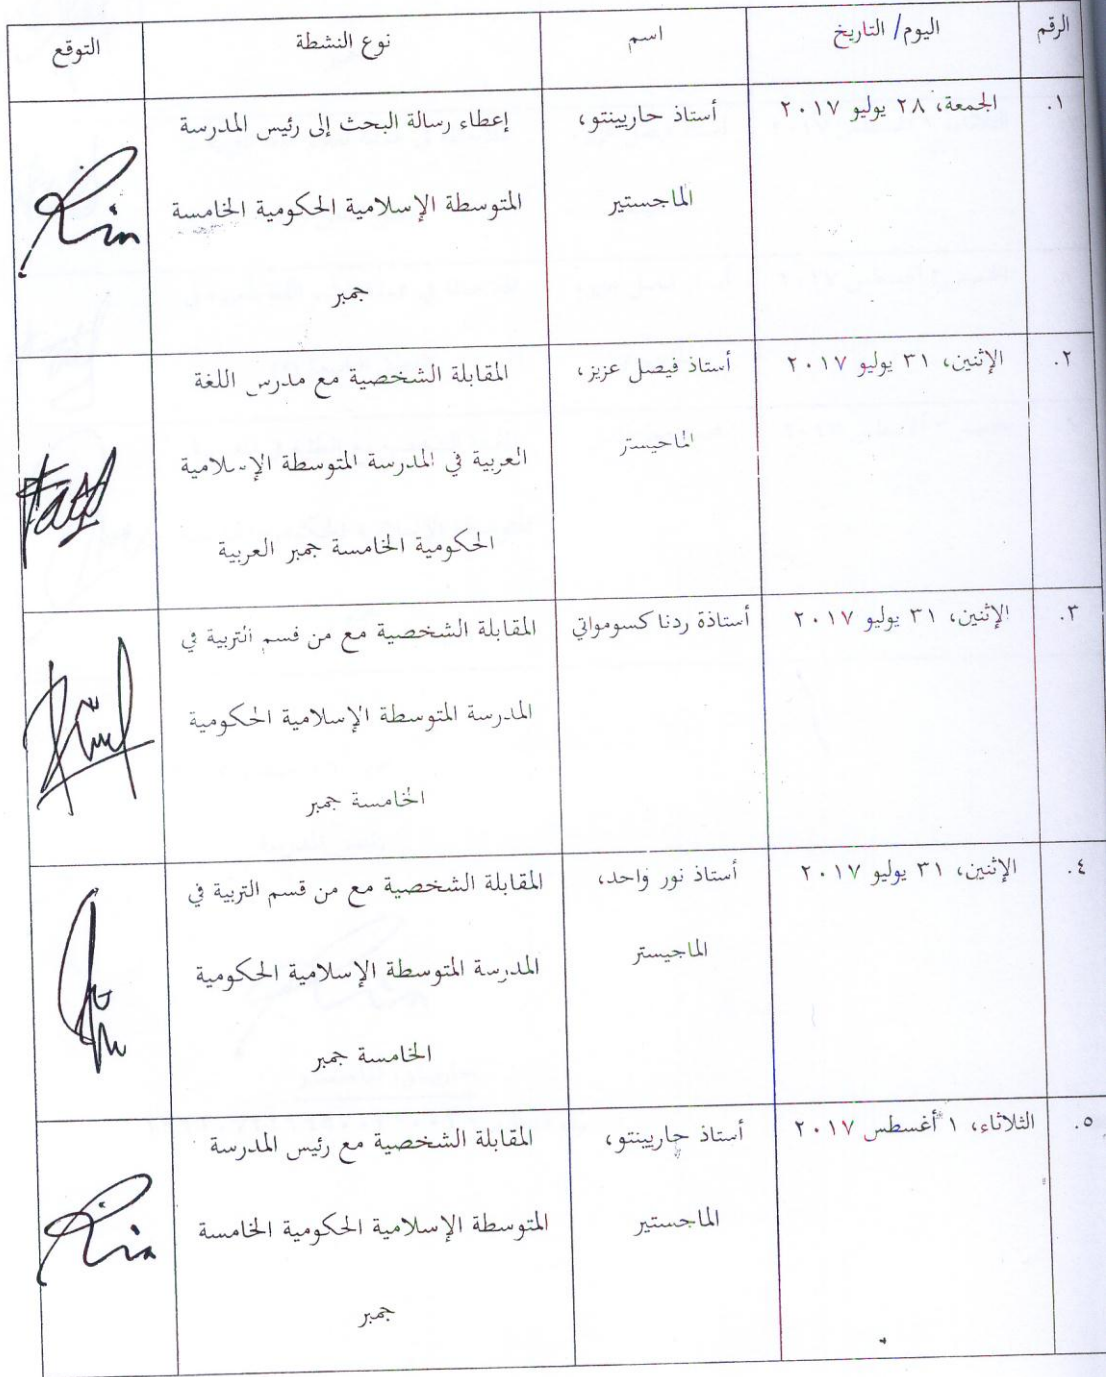 الرقم اليوم/ التاريخ اسم نوع النشطة التوقع
١. الجمعة، ٢٨ يوليو ٢٠١٧ أستاذ حاريينتو، إعطاء رسالة البحث إلى رئيس المدرسة
الماجستير المتوسطة الإسلامية الحكومية الخامسة
جمبر
٢. الإثنين، ٣١ يوليو ٢٠١٧ أستاذ فيصل عزيز، المقابلة الشخصية مع مدرس اللغة
الماحيستر العربية في المدرسة المتوسطة الإسلامية
الحكومية الخامسة جمبر العربية
٣. الإثنين، ٣١ يوليو ٢٠١٧ أستاذة ردنا كسومواتي المقابلة الشخصية مع من قسم التربية في
المدرسة المتوسطة الإسلامية الحكومية
الخامسة جمبر
٤. الإثنين، ٣١ يوليو ٢٠١٧ أستاذ نور واحد، المقابلة الشخصية مع من قسم التربية في
الماجيستر المدرسة المتوسطة الإسلامية الحكومية
الخامسة جمبر
٥. الثلاثاء، ١ أغسطس ٢٠١٧ أستاذ جاريينتو، المقابلة الشخصية مع رئيس المدرسة
الماجستير المتوسطة الإسلامية الحكومية الخامسة
جمبر